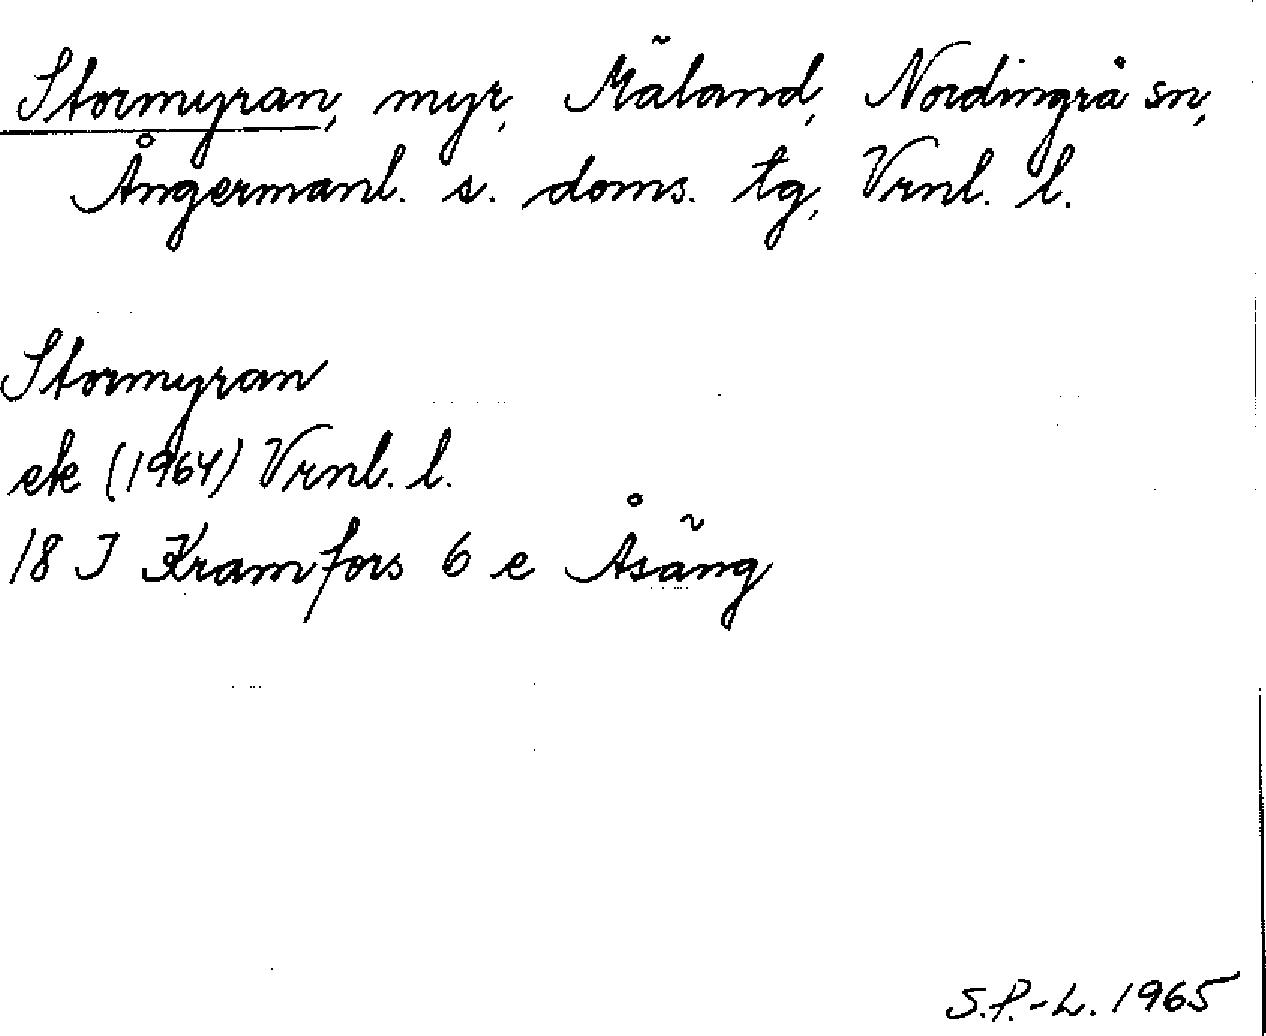 Stormyran, myr, Mäland, Nordingrå sn,
Ångermanl. s. doms. tg, Vrnl. l.
Stormyran
ek (1964) Vrnl. l.
18 I Kramfors 6 e Åsäng
S.P.-L. 1965